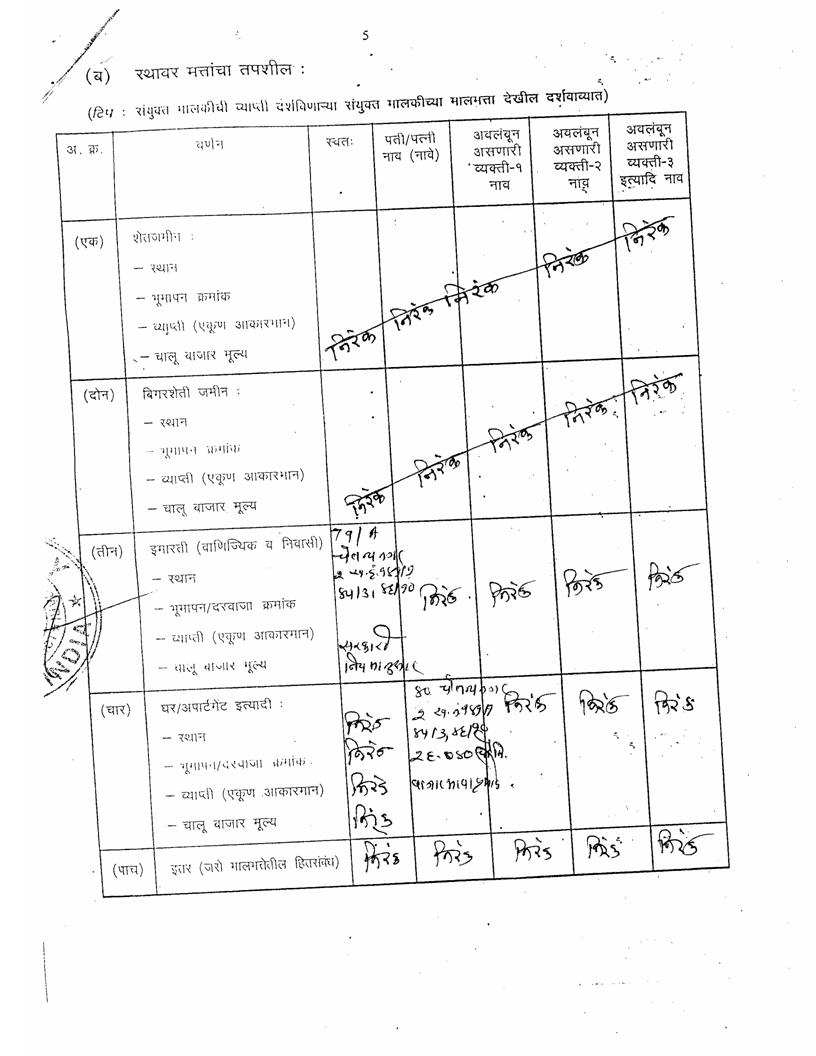 5
(ब) स्थावर मत्तांचा तपशील :
(टिप : संयुक्त मालकीची व्याप्ती दर्शविणाऱ्या संयुक्त मालकीच्या मालमत्ता देखील दर्शवाव्यात)
अ. क्र. वर्णन स्वतः पती/पत्नी नाव (नावे) अवलंबून असणारी व्यक्ती-१ नाव अवलंबून असणारी व्यक्ती-२ नाव अवलंबून असणारी व्यक्ती-३ इत्यादि नाव
(एक) शेतजमीन :
– स्थान
– भूमापन क्रमांक
– व्याप्ती (एकूण आकारमान)
– चालू बाजार मूल्य
निरंक निरंक निरंक निरंक निरंक
(दोन) बिगरशेती जमीन :
– स्थान
– भूमापन क्रमांक
– व्याप्ती (एकूण आकारमान)
– चालू बाजार मूल्य
निरंक निरंक निरंक निरंक निरंक
(तीन) इमारती (वाणिज्यिक व निवासी)
– स्थान
– भूमापन/दरवाजा क्रमांक
– व्याप्ती (एकूण आकारमान)
– चालू बाजार मूल्य
79/A
चैतन्य नगर
सरकारी
नियमानुसार
निरंक निरंक निरंक निरंक
(चार) घर/अपार्टमेंट इत्यादी :
– स्थान
– भूमापन/दरवाजा क्रमांक
– व्याप्ती (एकूण आकारमान)
– चालू बाजार मूल्य
निरंक
निरंक
निरंक
निरंक
चैतन्य नगर
निरंक निरंक निरंक
(पाच) इतर (जसे मालमत्तेतील हितसंबंध) निरंक निरंक निरंक निरंक निरंक
INDIA